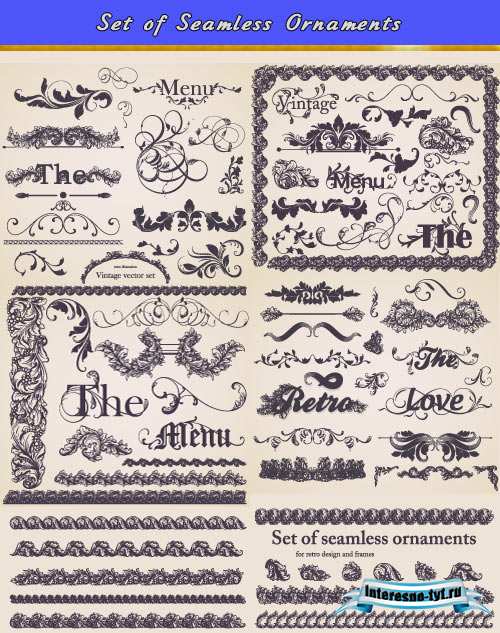 Set of Seamless Ornaments
Menu
The
Vintage vector set
Vintage
Menu
The
The
Menu
The
Retro
Love
Set of seamless ornaments
for retro design and frames
interesno-tyt.ru